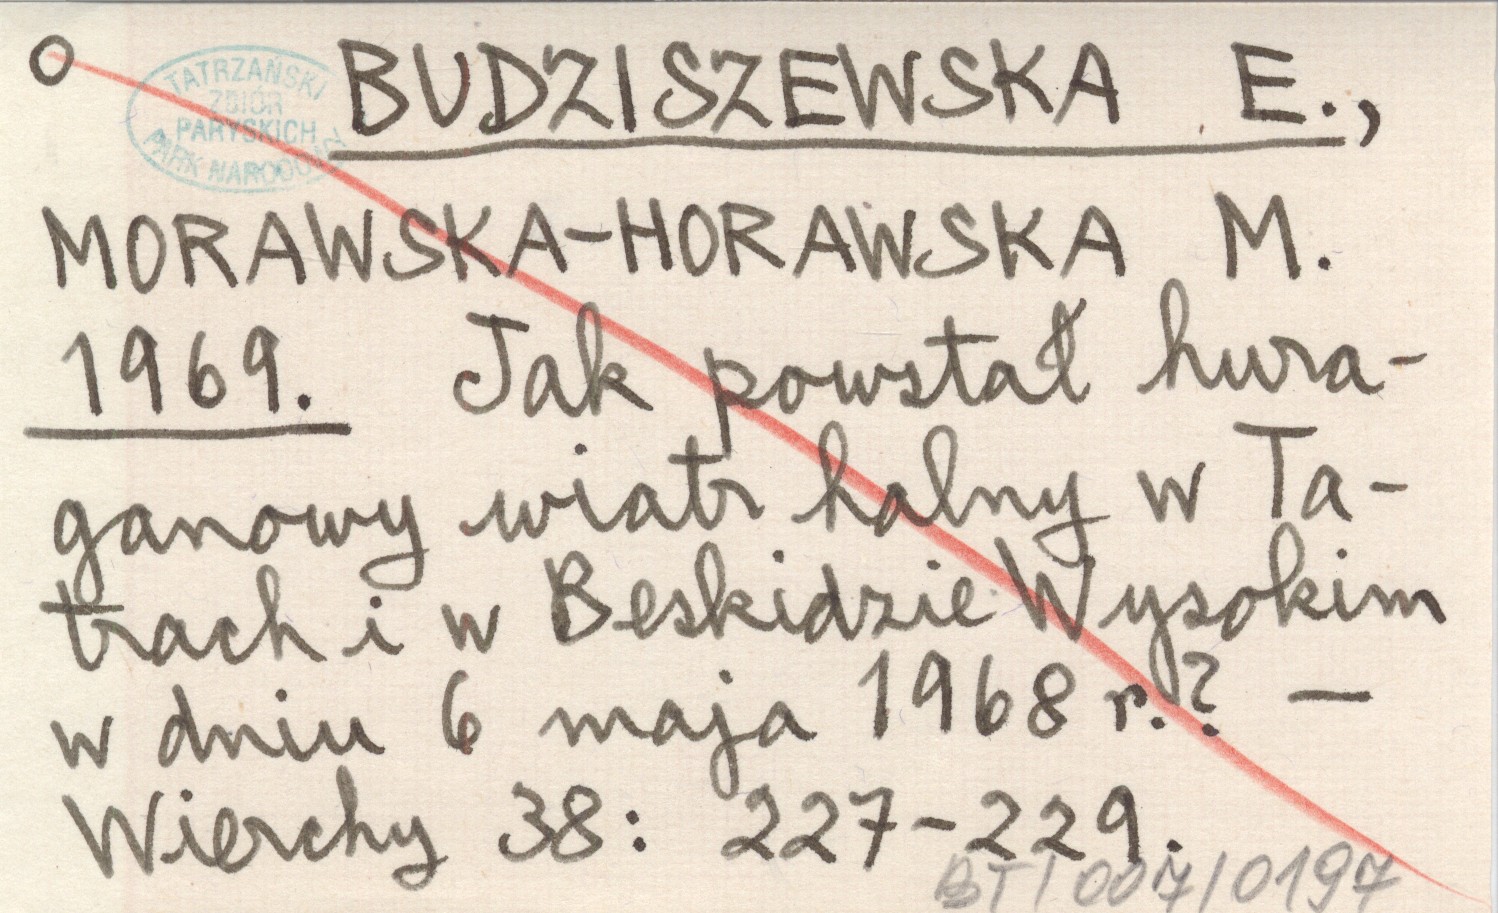 TATRZAŃSKI
ZBIÓR
PARYSKICH
PARK NARODOWY
BUDZISZEWSKA E.,
MORAWSKA-HORAWSKA M.
1969. Jak powstał hura-
ganowy wiatr halny w Ta-
trach i w Beskidzie Wysokim
w dniu 6 maja 1968 r.? —
Wierchy 38: 227-229.
BT/007/0197